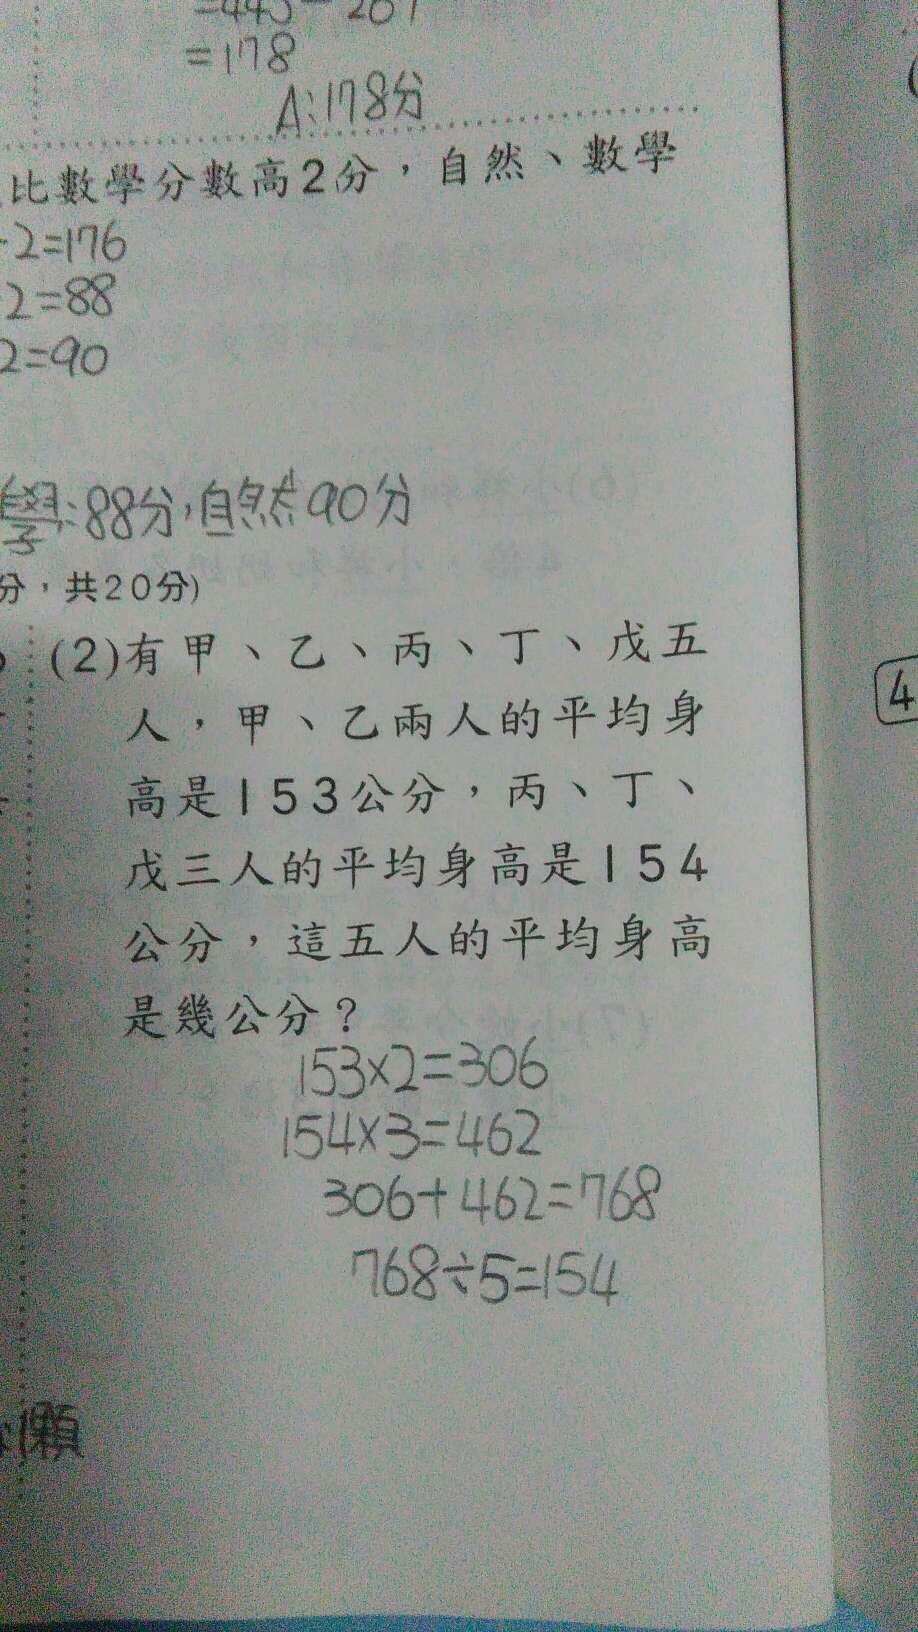 =445-267
=178
A:178分
比數學分數高2分，自然、數學
2=176
2=88
2=90
學:88分,自然90分
分，共20分)
(2)有甲、乙、丙、丁、戊五
人，甲、乙兩人的平均身
高是153公分，丙、丁、
戊三人的平均身高是154
公分，這五人的平均身高
是幾公分？
153×2=306
154×3=462
306+462=768
768÷5=154
懶
4